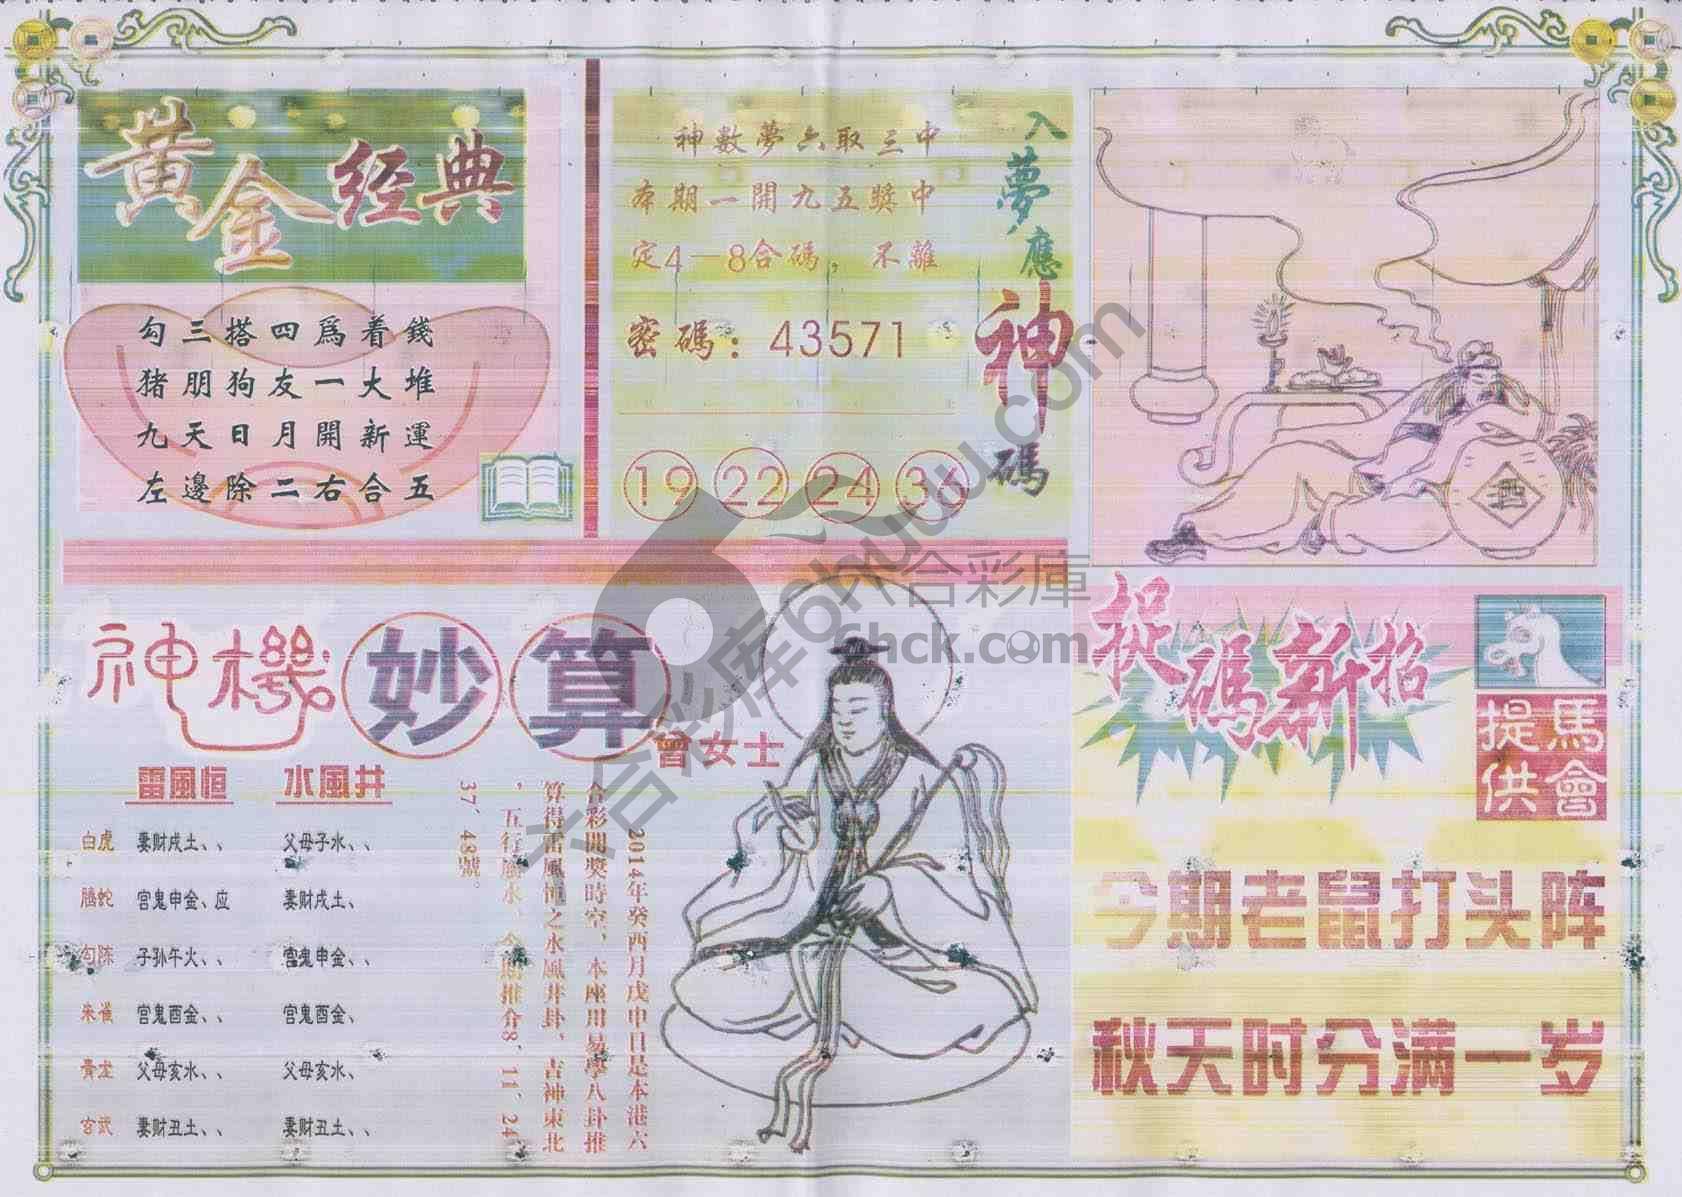 黄金经典
勾三搭四爲着錢
猪朋狗友一大堆
九天日月開新運
左邊除二右合五
神數夢六取三中
本期一開九五獎中
定4－8合碼，不離
密碼：43571
19 22 24 36
入夢應神碼
酒
神機妙算
曾女士
雷風恒 水風井
白虎 妻财戌土、、 父母子水、、
腾蛇 官鬼申金、应 妻财戌土、
勾陈 子孙午火、、 官鬼申金、、
朱雀 官鬼酉金、、 官鬼酉金、
青龙 父母亥水、、 父母亥水、
玄武 妻财丑土、、 妻财丑土、、
2014年癸酉月戊申日是本港六
合彩開獎時空，本座用易學八卦推
算得雷風恒之水風井卦，吉神東北
，五行屬水，今期推介8、11、24
37、48號。
捉碼新招
馬會
提供
今期老鼠打头阵
秋天时分满一岁
六合彩库6huuu.com
六合彩庫
6hck.com